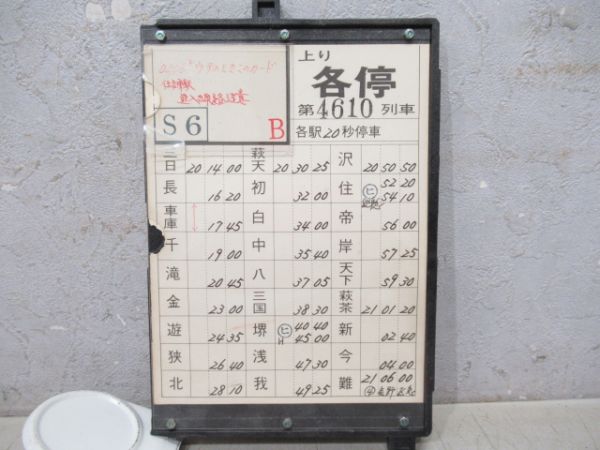 上り
各停
第4610列車
各駅20秒停車
S6
B
三日 20 14 00
長 16 20
車庫 17 45
千 19 00
滝 20 45
金 23 00
遊 24 35
狭 26 40
北 28 10
萩天 20 30 25
初 32 00
白 34 00
中 35 40
八 37 05
三国 38 30
堺 ㋪ 40 40
H 45 00
浅 47 30
我 49 25
沢 20 50 50
住 ㋪ 52 20
54 10
帝 56 00
岸 57 25
天下 59 30
萩茶 21 01 20
新 02 40
今 04 00
難 21 06 00